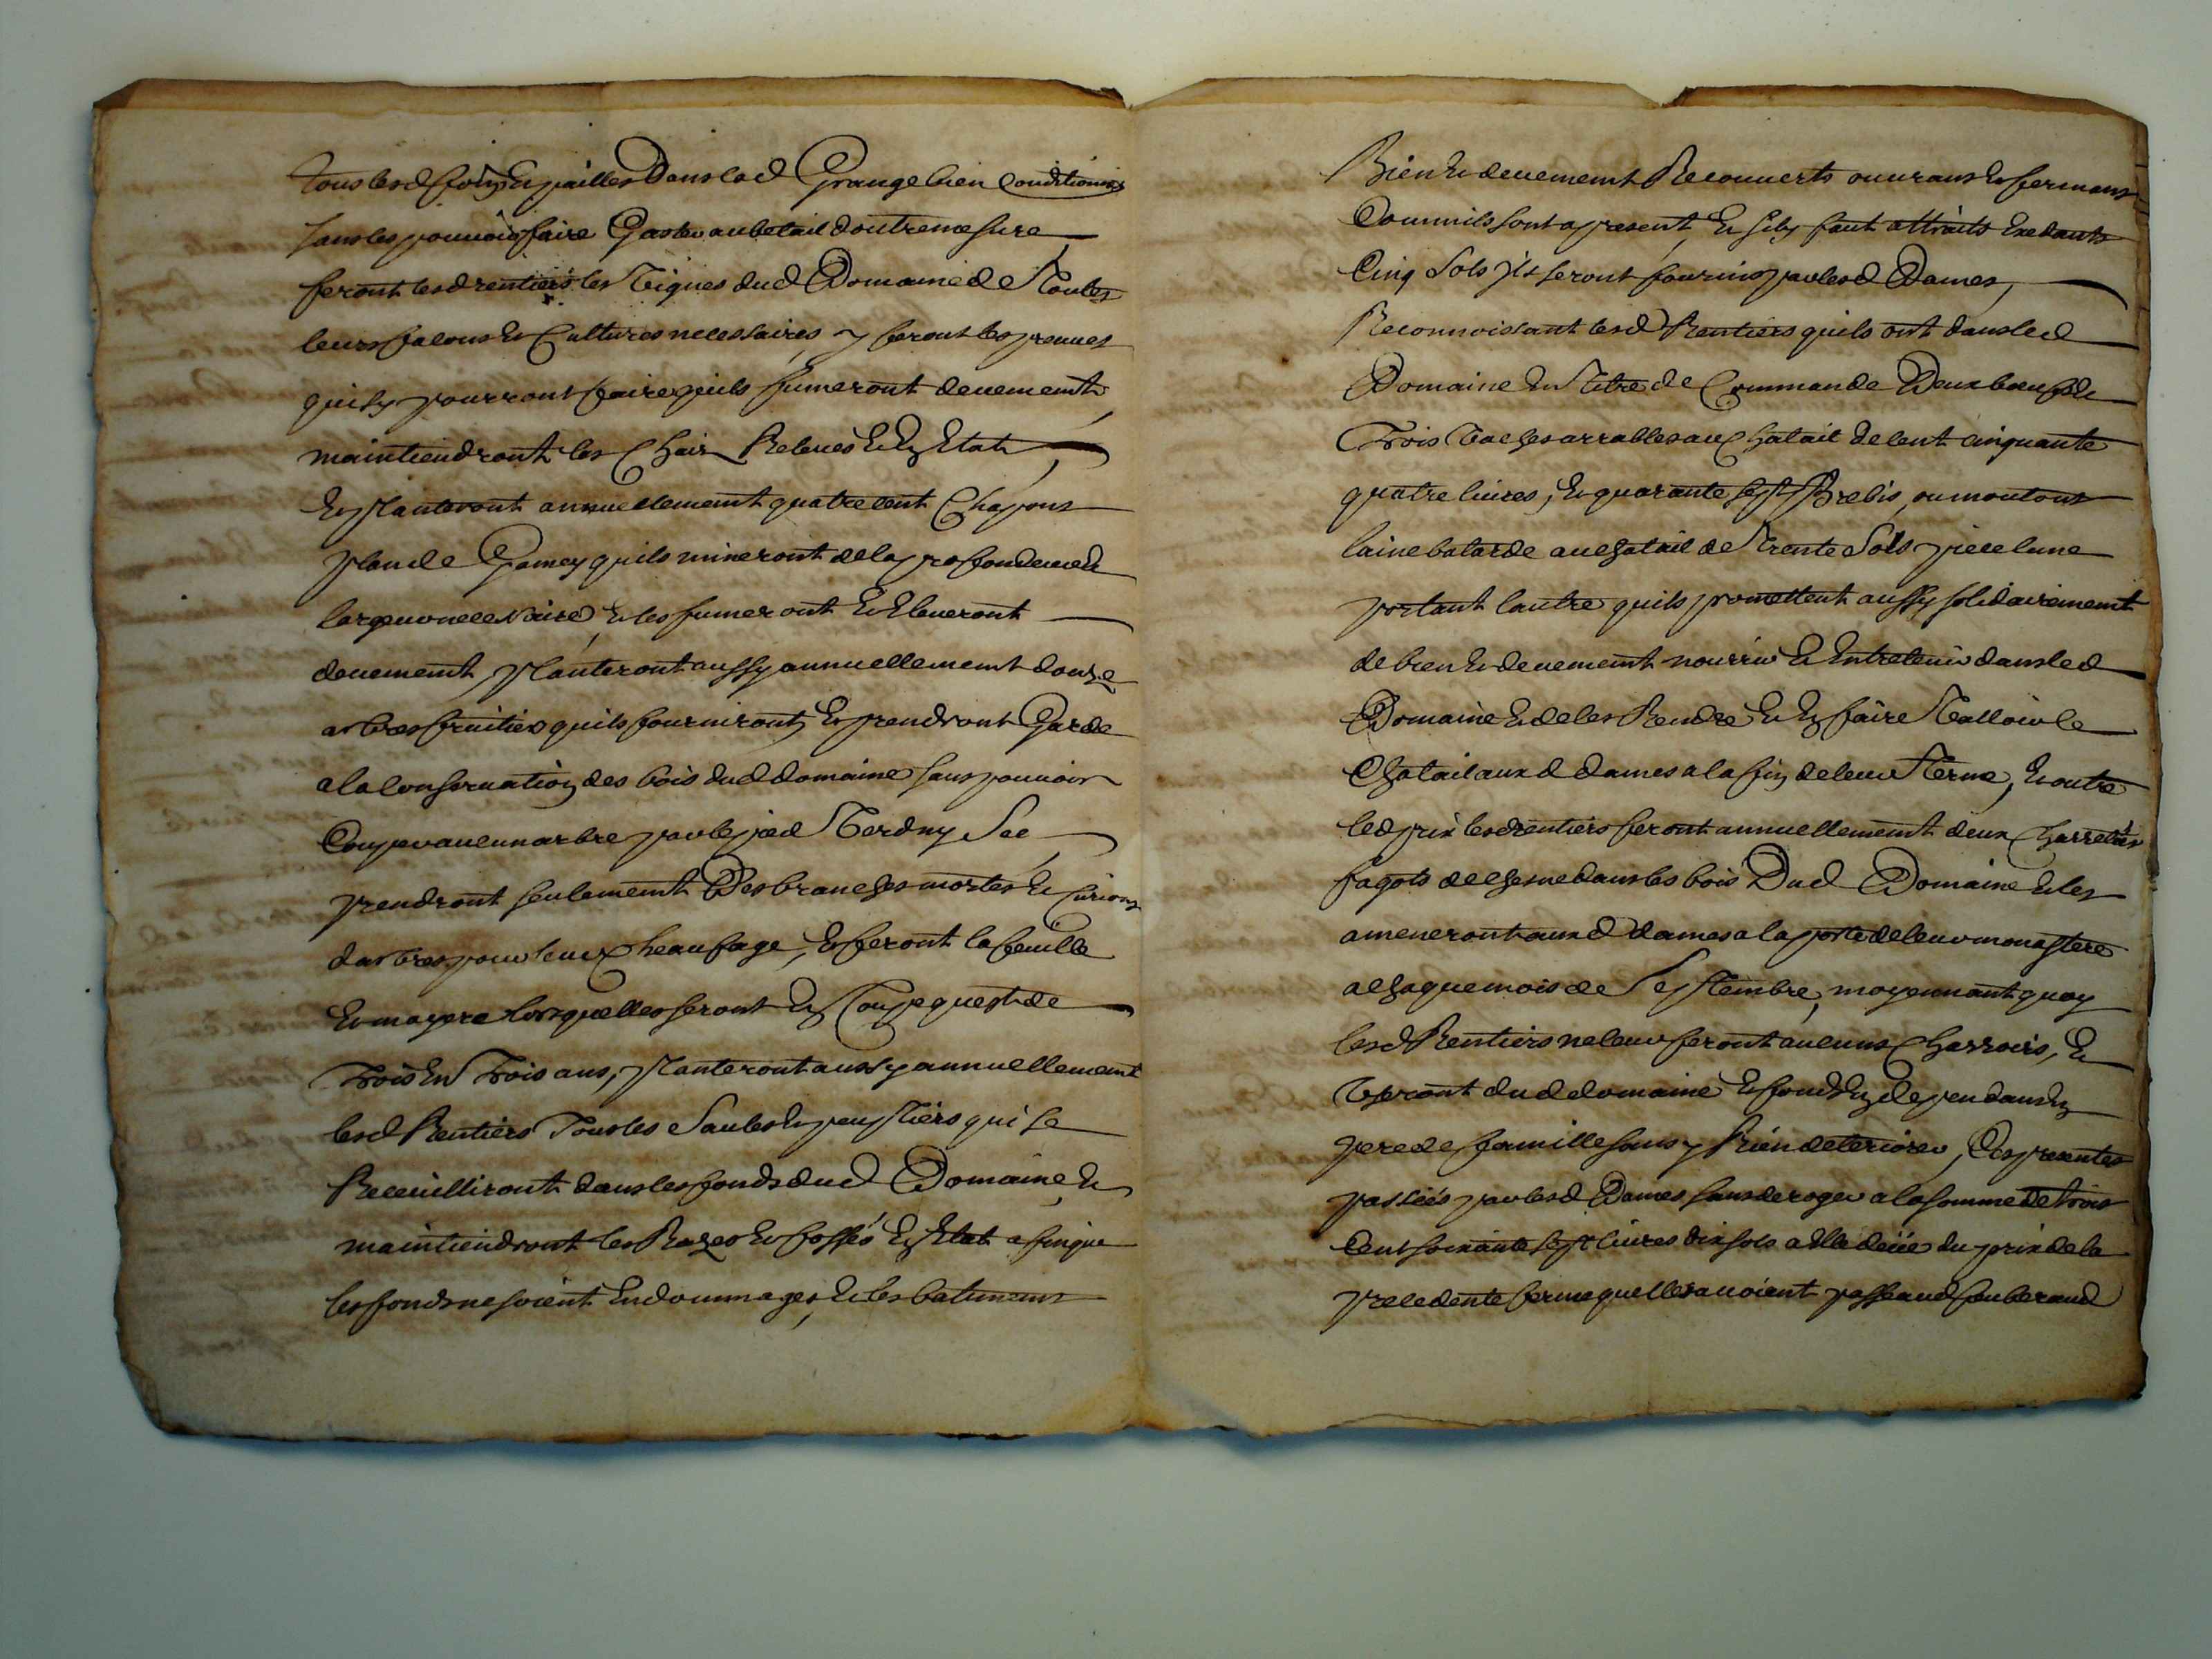 tous lesd foins et pailles dans lad Grange bien Conditionnés
sans les pouvoir faire Gaster au betail doutre mesure
feront lesd rentiers les vignes dud Domaine de toutes
leurs facons et Cultures necessaires y feront les preuves
quils y pourront faire quils fumeront deuement
maintiendront les Chair Releués et En Etat
Et planteront annuellement quatre cent Chapons
plan de Gamey quils mineront de la profondeur et
largeur necessaire, et les fumeront et Eleueront
deuement, planteront aussy annuellement douze
arbres fruitiers quils fourniront, Et prendront Garde
a la Conseruation des bois dud domaine sans pouuoir
Couper aucun arbre par le pied Verd ny Sec
prendront seulement Des branches mortes et
darbres pour leur Cheaufage, Et feront la feuille
Et mayere lorsquelles seront En Coupe quest de
Trois En Trois ans, planteront aussy annuellement
lesd Rentiers Tous les Saules Et peupliers qui se
Receuilliront dans les fonds dud Domaine, Et
maintiendront les Razes Et fossés En Etat afinque
les fonds ne soient Endommages, Et les batimens
Bien Et deuement Recouuerts ouurans Et fermans
Comm ils sont a present, Et sily faut attraits Exedants
Cinq Sols ils seront fournis par lesd Dames,
Reconnoissant lesd Rentiers quils ont dans led
Domaine En Titre de Commande Deux boeufs Et
Trois Vaches arrables au Chatail de Cent Cinquante
quatre liures, Et quarante sept Brebis, ou moutons
laine batarde au Chatail de Trente Sols piece lune
portant lautre quils promettent aussy solidairement
de bien Et deuement nourrir Et Entretenir dans led
Domaine Et de les Rendre Et En faire Valloir le
Chatail auxd dames a la fin de leur Terme, Et outre
led prix lesd rentiers feront annuellement deux Charretées
fagots de Chesne dans les bois Dud Domaine Et les
ameneront auxd dames a la porte de leur monastere
a Chaque mois de Septembre, moyennant quoy
lesd Rentiers ne leur feront aucuns Charrois, Et
Useront dud domaine Et fonds En dependans En
pere de famille sans y Rien deteriorer, Ces presentes
passées par lesd Dames sans deroger a la somme de trois
Cent soixante sept liures dix sols a Elle deüe du prix de la
precedente ferme quelles auoient passé aud